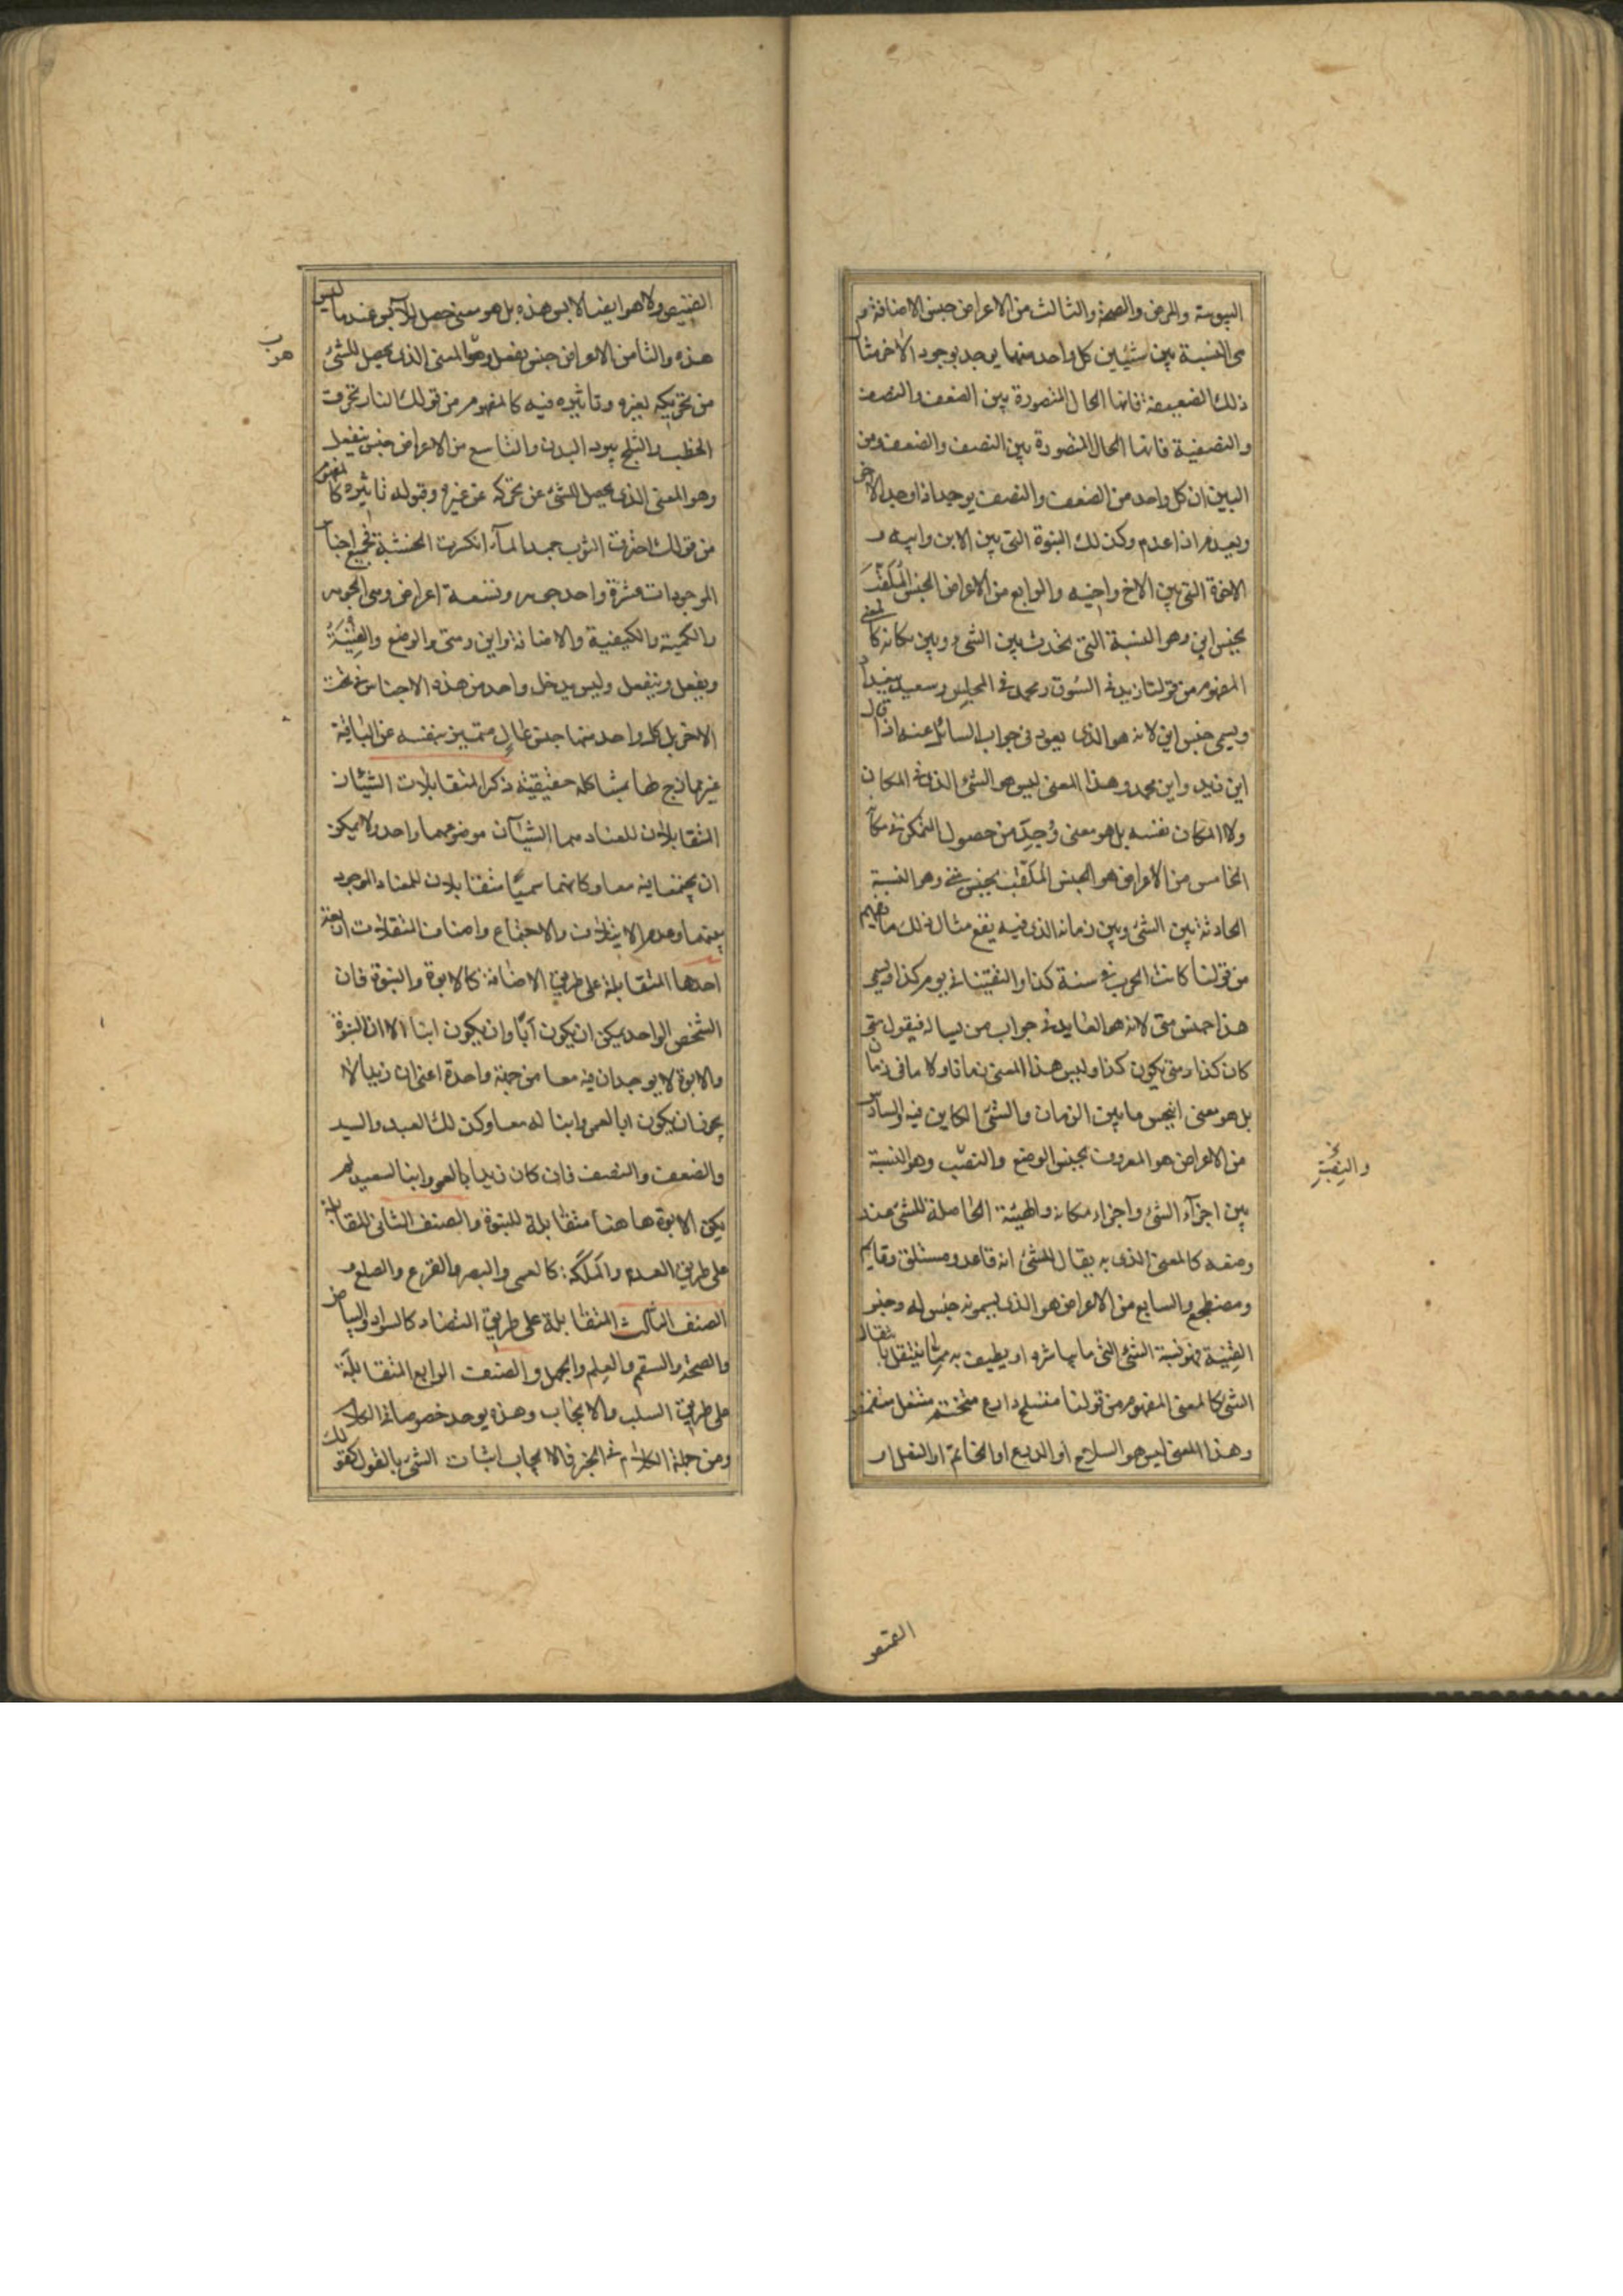 اليبوسة والمرض والصحة والثالث من الاعراض جنس الاضافة
هى النسبة بين شيئين كل واحد منهما يوجد بوجود الاخر مثال
ذلك الضعيفة فانها الحال المتصورة بين الضعف والنصف
والنصفية فانها الحال المتصورة بين النصف والضعف ومن
البين ان كل واحد من الضعف والنصف يوجد اذا وجد الاخر
ويعدم اذا عدم وكذلك البنوة التى بين الابن وابيه و
الاخوة التى بين الاخ واخيه والرابع من الاعراض الجنس الملقب
بجنس اين وهو النسبة التى تحدث بين الشىء وبين مكانه كالمعنى
المفهوم من قولنا زيد فى السوق ومحمد فى المجلس وسعيد ببغداد
ويسمى جنس اين لانه هو الذى يعود فى جواب السائل عنه اذا قال
اين زيد واين محمد وهذا المعنى ليس هو الشىء الذى فى المكان
ولا المكان نفسه بل هو معنى وجد من حصول المتمكن فى مكانه
الخامس من الاعراض هو الجنس الملقب بجنس متى وهو النسبة
الحادثة بين الشىء وبين زمانه الذى فيه يقع مثال ذلك ما يفهم
من قولنا كانت الحرب فى سنة كذا والتقينا فى يوم كذا ويسمى
هذا جنس متى لانه هو العايد فى جواب من يسال فيقول متى
كان كذا ومتى يكون كذا وليس هذا المعنى زمانا ولا ما فى زمان
بل هو معنى انبجس ما بين الزمان والشىء الكاين فيه والسادس
من الاعراض هو المعروف بجنس الوضع والنصب وهو النسبة
والنصبة
بين اجزآء الشىء واجزاء مكانه والهيئة الحاصلة للشىء عند
وضعه كالمعنى الذى به يقال للشىء انه قاعد ومستلق وقايم
ومضطجع والسابع من الاعراض هو الذى يسمونه جنس له وجنس
القنية وهو نسبة الشىء الى ما يماسه او يطيف به مما ينتقل بانتقال
الشىء كالمعنى المفهوم من قولنا متسلح دارع متختم متنعل متقمص
وهذا المعنى ليس هو السلاح او الدرع او الخاتم او النعل او
القميص
القميص ولا هو ايضا لابس هذه بل هو معنى حصل للابس عند ما لبس
هذه والثامن من الاعراض جنس يفعل وهو المعنى الذى يحصل للشىء
من تحريكه لغيره وتاثيره فيه كالمفهوم من قولك النار تحرق
الحطب والثلج يبرد البدن والتاسع من الاعراض جنس ينفعل
وهو المعنى الذى يحصل للشىء عن تحركه عن غيره وقبوله تاثيره كالمفهوم
من قولك احترق الثوب جمد المآء انكسرت الخشبة فجميع اجناس
الموجودات عشرة واحد جوهر وتسعة اعراض وهى الجوهر
والكمية والكيفية والاضافة واين ومتى والوضع والقنية
ويفعل وينفعل وليس يدخل واحد من هذه الاجناس تحت
الاخر بل كل واحد منها جنس عال متميز بنفسه عن الباقية
غير ممازج لها بمشاكلة حقيقية ذكر المتقابلات الشيئان
المتقابلان للعناد هما الشيآن موضوعهما واحد ولا يمكن
ان يجتمعا فيه معا وكانهما سميا متقابلان للعناد الموجود
بينهما وعدم الايتلاف والاجتماع واصناف المتقابلات اربعة
احدها المتقابلة على طريق الاضافة كالابوة والبنوة فان
الشخص الواحد يمكن ان يكون آبا وان يكون ابنا الا ان البنوة
والابوة لا يوجدان فيه معا من جهة واحدة اعنى ان زيدا لا
يجوز ان يكون ابا لعمرو وابنا له معا وكذلك العبد والسيد
والضعف والنصف فان كان زيد ابا لعمرو وابنا لسعيد لم
يكن الابوة هاهنا متقابلة للبنوة والصنف الثانى المتقابلة
على طريق العدم والملكة كالعمى والبصر والقرع والصلع و
الصنف الثالث المتقابلة على طريق التضاد كالسواد والبياض
والصحة والسقم والعلم والجهل والصنف الرابع المتقابلة
على طريق السلب والايجاب وهذه يوجد خصوصا فى الكلام
ومن جملة الكلام فى الخبر فالايجاب اثبات الشىء بالقول كقولك